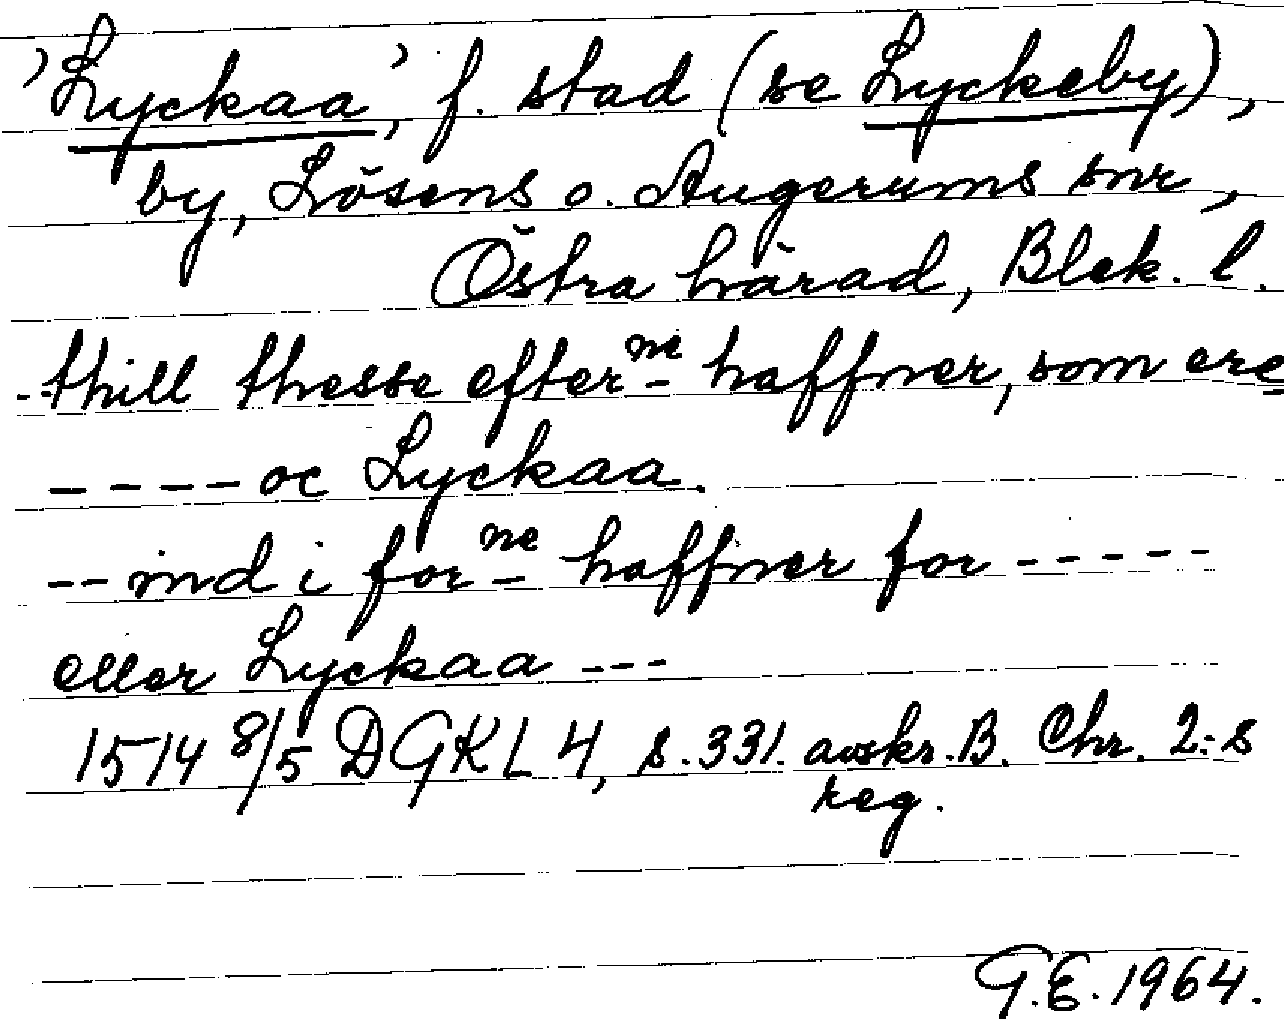 ’Lyckaa’, f. stad (se Lyckeby),
by, Lösens o. Augerums snr,
Östra härad, Blek. l.
--thill thesse efterne haffner, som ere
----- oc Lyckaa.
-- ind i forne haffner for -----
eller Lyckaa ---
1514 8/5 DGKL 4, s. 331. avskr. B. Chr. 2:s
reg.
G.E. 1964.